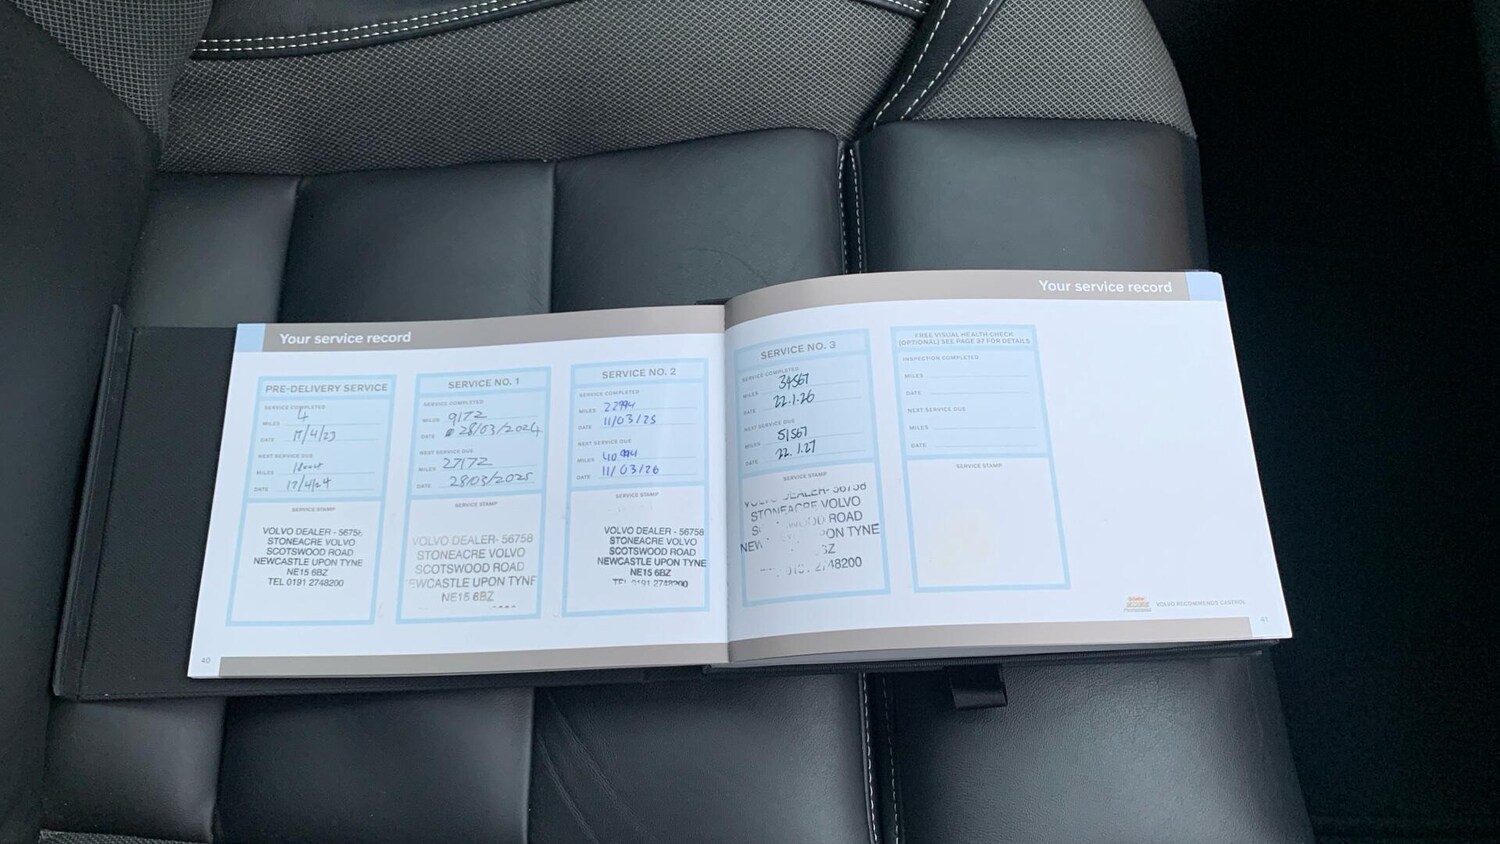 Your service record
PRE-DELIVERY SERVICE
SERVICE COMPLETED
MILES 4
DATE 17/4/23
NEXT SERVICE DUE
MILES
DATE 17/4/24
SERVICE STAMP
VOLVO DEALER - 56758
STONEACRE VOLVO
SCOTSWOOD ROAD
NEWCASTLE UPON TYNE
NE15 6BZ
TEL 0191 2748200
SERVICE NO. 1
SERVICE COMPLETED
MILES 9172
DATE 28/03/2024
NEXT SERVICE DUE
MILES 27172
DATE 28/03/2025
SERVICE STAMP
VOLVO DEALER- 56758
STONEACRE VOLVO
SCOTSWOOD ROAD
EWCASTLE UPON TYNE
NE15 6BZ
SERVICE NO. 2
SERVICE COMPLETED
MILES
DATE 11/03/25
NEXT SERVICE DUE
MILES
DATE 11/03/26
SERVICE STAMP
VOLVO DEALER - 56758
STONEACRE VOLVO
SCOTSWOOD ROAD
NEWCASTLE UPON TYNE
NE15 6BZ
TEL 0191 2748200
40
Your service record
SERVICE NO. 3
SERVICE COMPLETED
MILES 34567
DATE 22.1.26
NEXT SERVICE DUE
MILES 51567
DATE 22.1.27
SERVICE STAMP
VOLVO DEALER- 56758
STONEACRE VOLVO
ROAD
ON TYNE
8200
FREE VISUAL HEALTH CHECK
(OPTIONAL) SEE PAGE 37 FOR DETAILS
INSPECTION COMPLETED
MILES
DATE
NEXT SERVICE DUE
MILES
DATE
SERVICE STAMP
VOLVO RECOMMENDS CASTROL
41